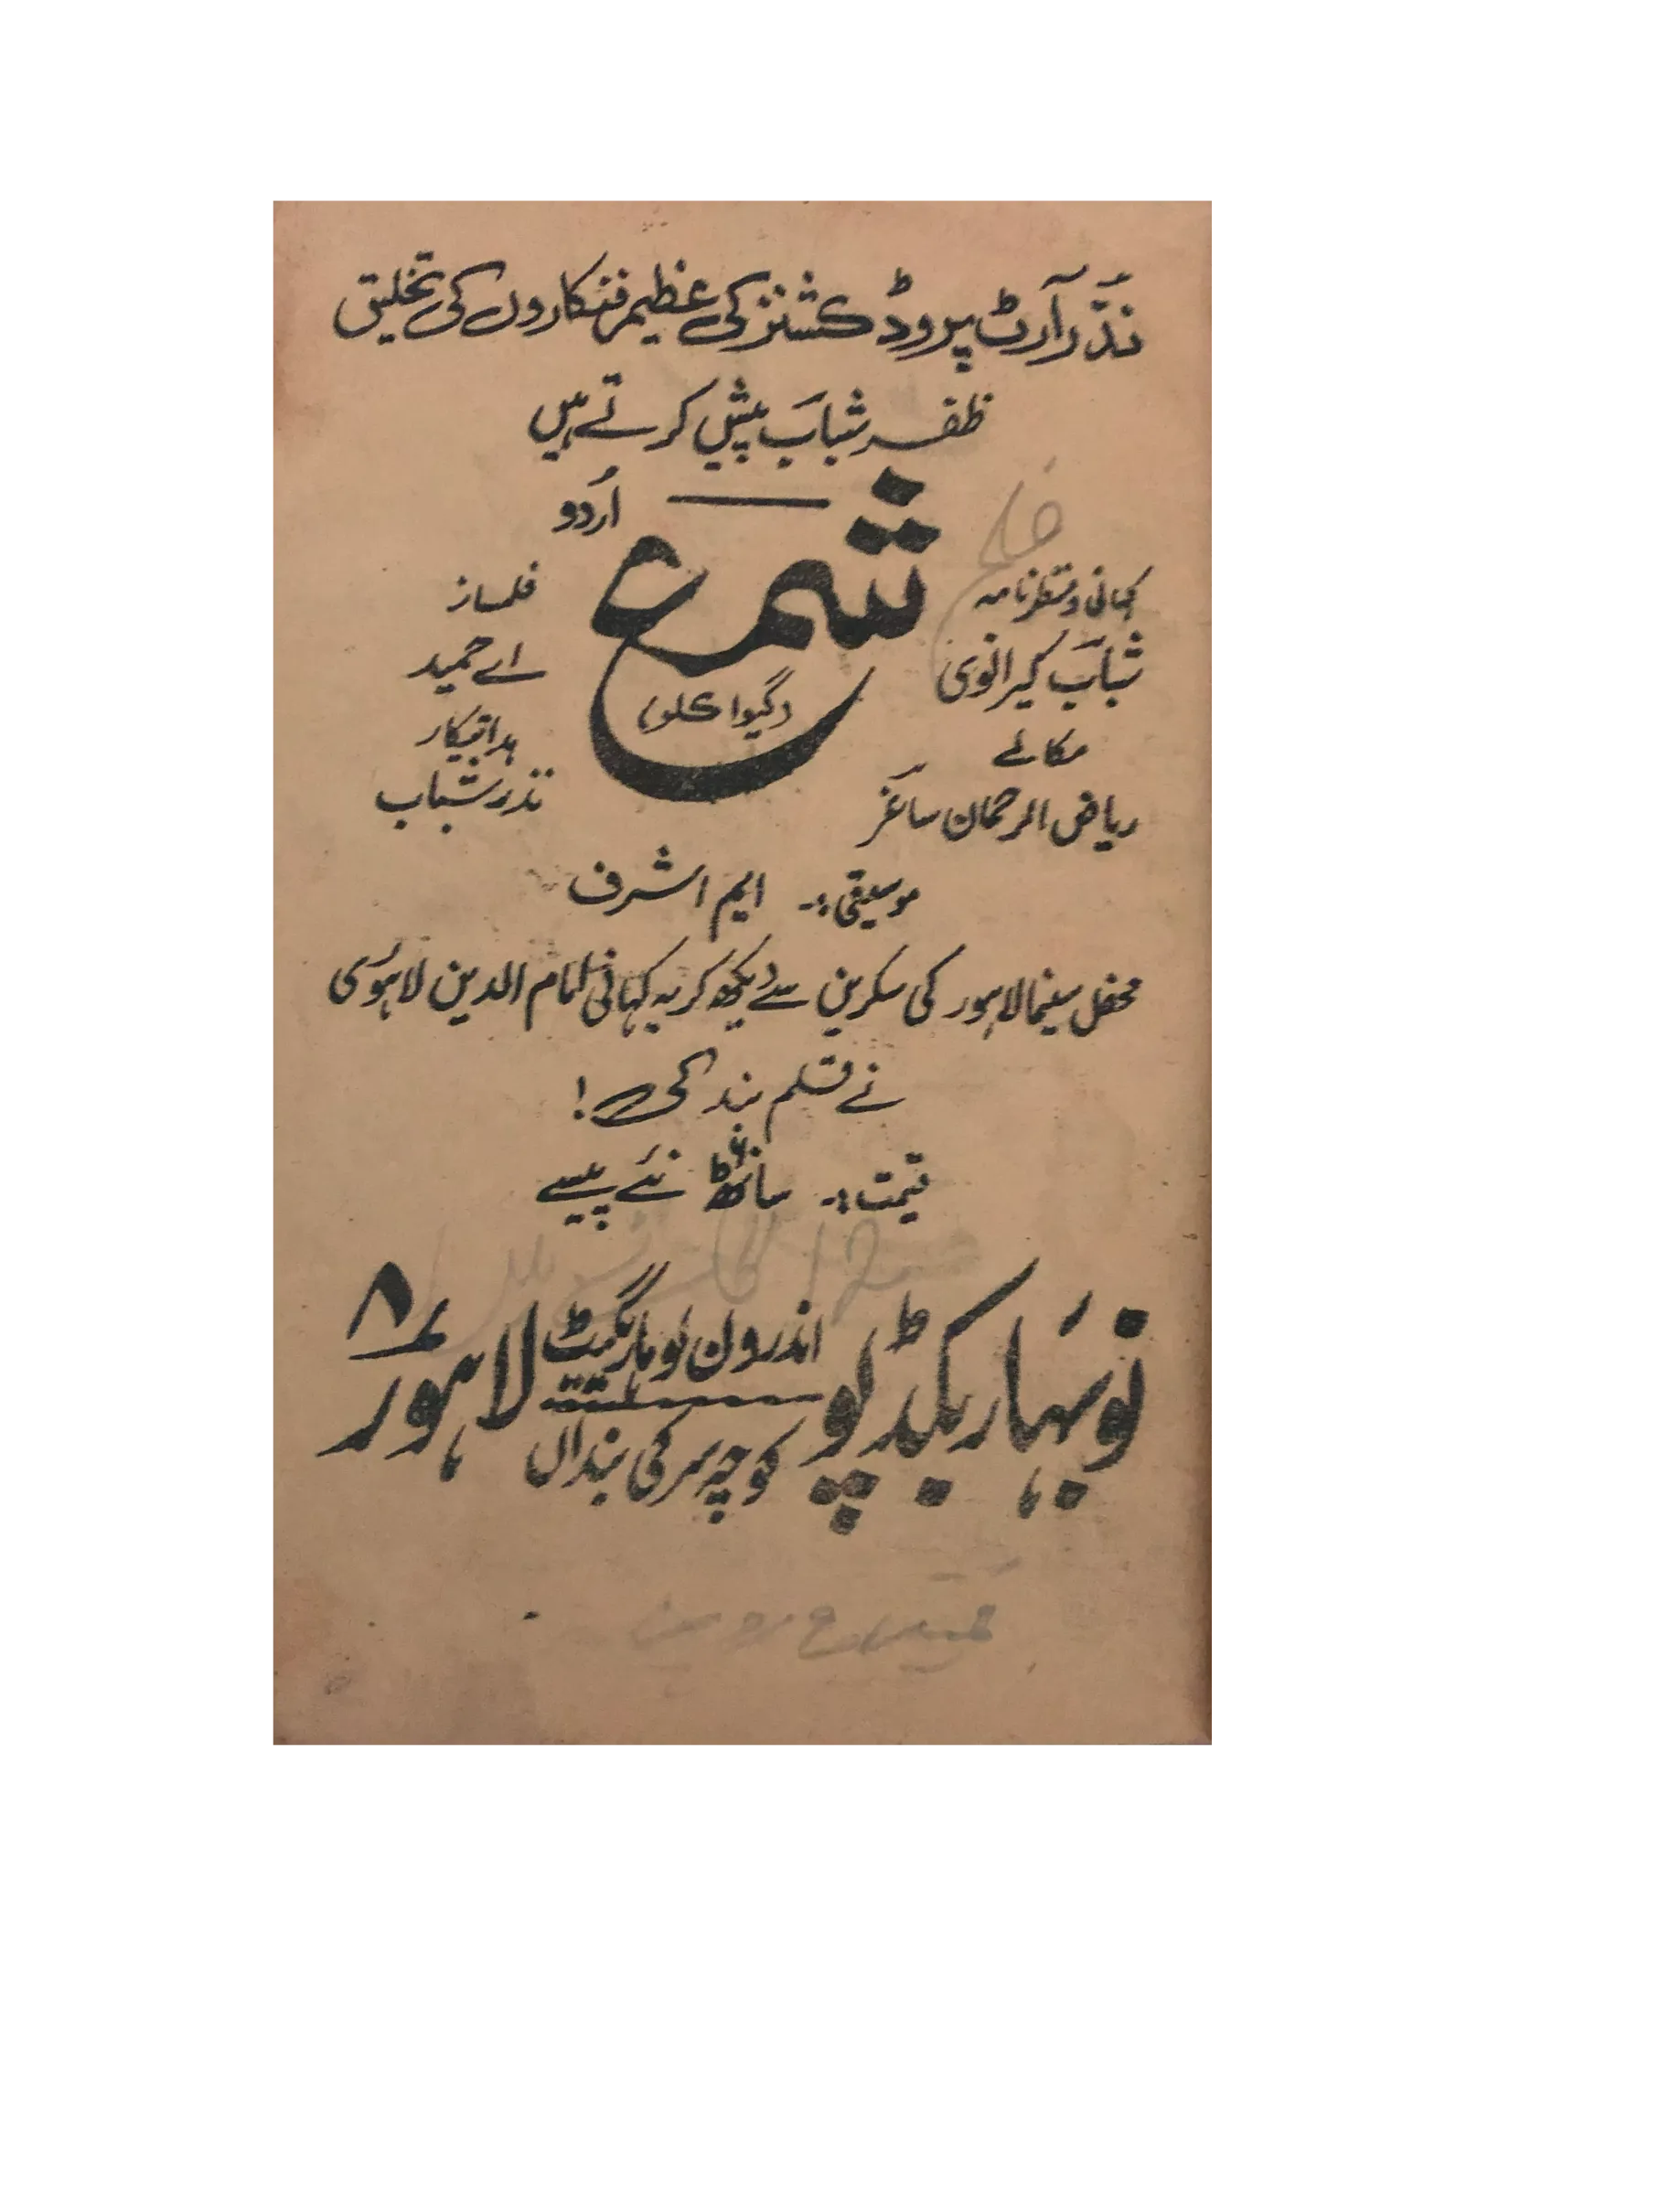 نذر آرٹ پروڈکشنز کی عظیم فنکاروں کی تخلیق
ظفر شباب پیش کرتے ہیں
شمع
اُردو
(گیوا کلر)
کہانی و منظرنامہ
شباب کیرانوی
مکالمے
ریاض الرحمان ساغر
فلمساز
اے حمید
ہدائیتکار
نذر شباب
موسیقی:۔ ایم اشرف
محفل سینما لاہور کی سکرین سے دیکھ کر یہ کہانی امام الدین لاہوری
نے قلم بند کی!
قیمت:۔ ساٹھ نئے پیسے
نوبہار بکڈپو اندرون لوہاری گیٹ
کوچہ سرکی بنداں لاہور ۸